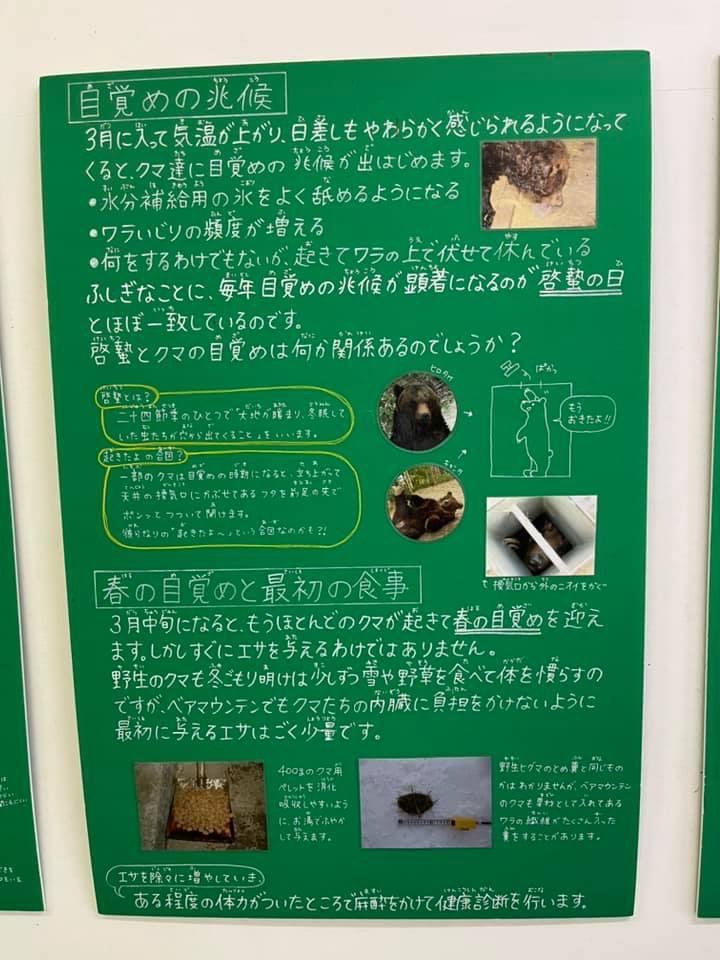 目覚めの兆候
3月に入って気温が上がり、日差しもやわらかく感じられるようになって
くると、クマ達に目覚めの兆候が出はじめます。
•水分補給用の氷をよく舐めるようになる
•ワラいじりの頻度が増える
•何をするわけでもないが、起きてワラの上で伏せて休んでいる
ふしぎなことに、毎年目覚めの兆候が顕著になるのが啓蟄の日
とほぼ一致しているのです。
啓蟄とクマの目覚めは何か関係あるのでしょうか?
啓蟄とは?
二十四節季のひとつで"大地が暖まり、冬眠して
いた虫たちが穴から出てくること"をいいます。
起きたよの合図?
一部のクマは目覚めの時期になると、立ち上がって
天井の換気口にかぶせてあるフタを前足の爪で
ポンってつついて開けます。
彼らなりの"起きたよ〜"という合図なのかも?!
もう
おきたよ!!
換気口から外のニオイをかぐ
春の目覚めと最初の食事
3月中旬になると、もうほとんどのクマが起きて春の目覚めを迎え
ます。しかしすぐにエサを与えるわけではありません。
野生のクマも冬ごもり明けは少しずつ雪や野草を食べて体を慣らすの
ですが、ベアマウンテンでもクマたちの内臓に負担をかけないように
最初に与えるエサはごく少量です。
400gのクマ用
ペレットを消化
吸収しやすいよう
に、お湯でふやか
して与えます。
野生ヒグマのとめ糞と同じもの
かはわかりませんが、ベアマウンテン
のクマも寝わらとして入れてある
ワラの繊維がたくさん入った
糞をすることがあります。
エサを徐々に増やしていき、
ある程度の体力がついたところで麻酔をかけて健康診断を行います。